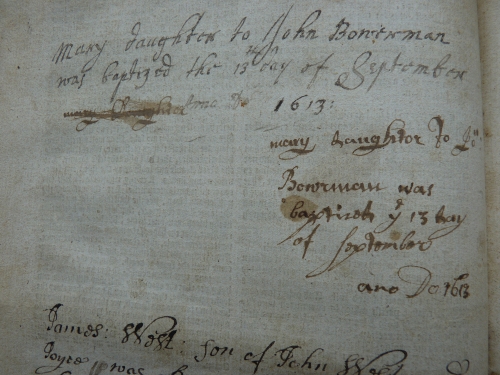 Mary daughter to John Bowerman
was baptized the 13th day of September
mary daughter
ano Do 1613:
mary daughter to Jo:
Bowrman was
baptized ye 13 day
of September
ano Do 1613
James: West: son of John West
Joyce was